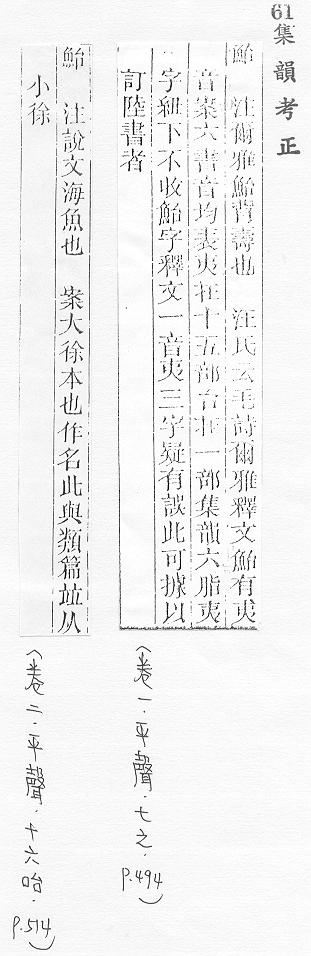 61
集韻考正
鮐 注爾雅鮐背壽也 汪氏云毛詩爾雅釋文鮐有夷
音案六書音均表夷在十五部台在一部集韻六脂夷
字紐下不收鮐字釋文一音夷三字疑有誤此可據以
訂陸書者
(卷一.平聲.七之.
P.494)
鮐 注說文海魚也 案大徐本也作名此與類篇竝从
小徐
(卷二.平聲.十六咍.
P.514)